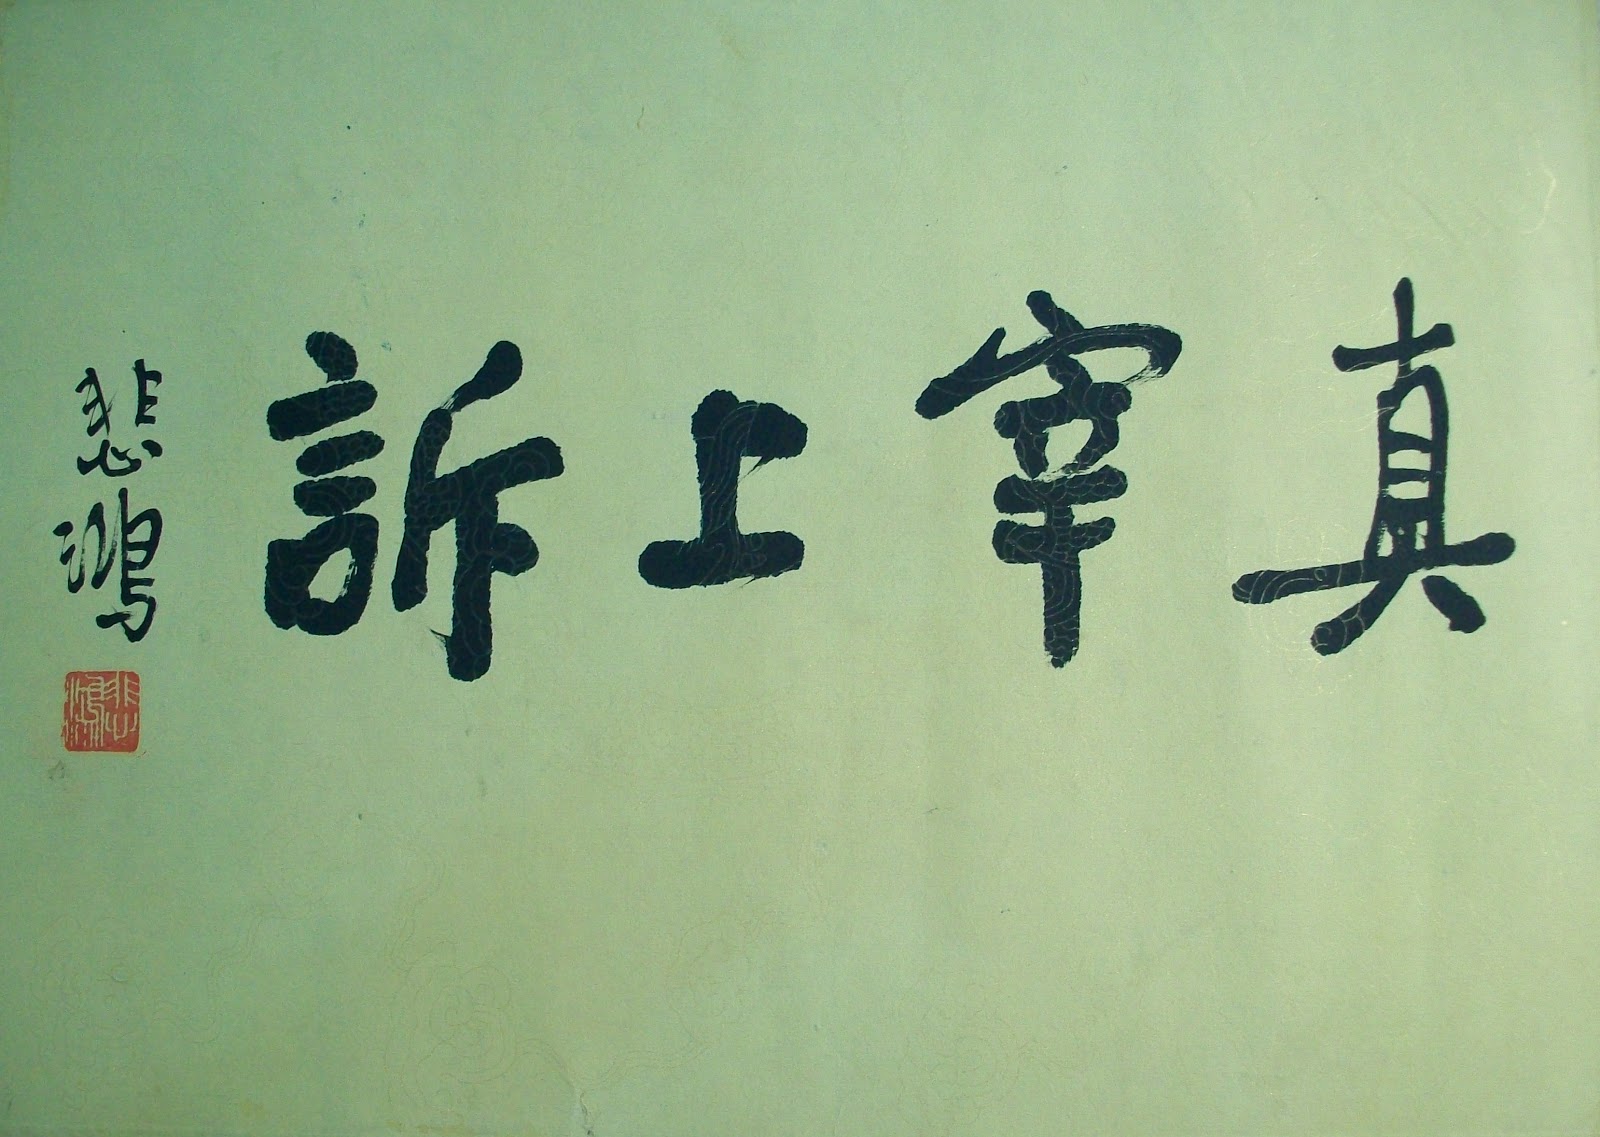 真宰上訴
悲鴻
悲鴻